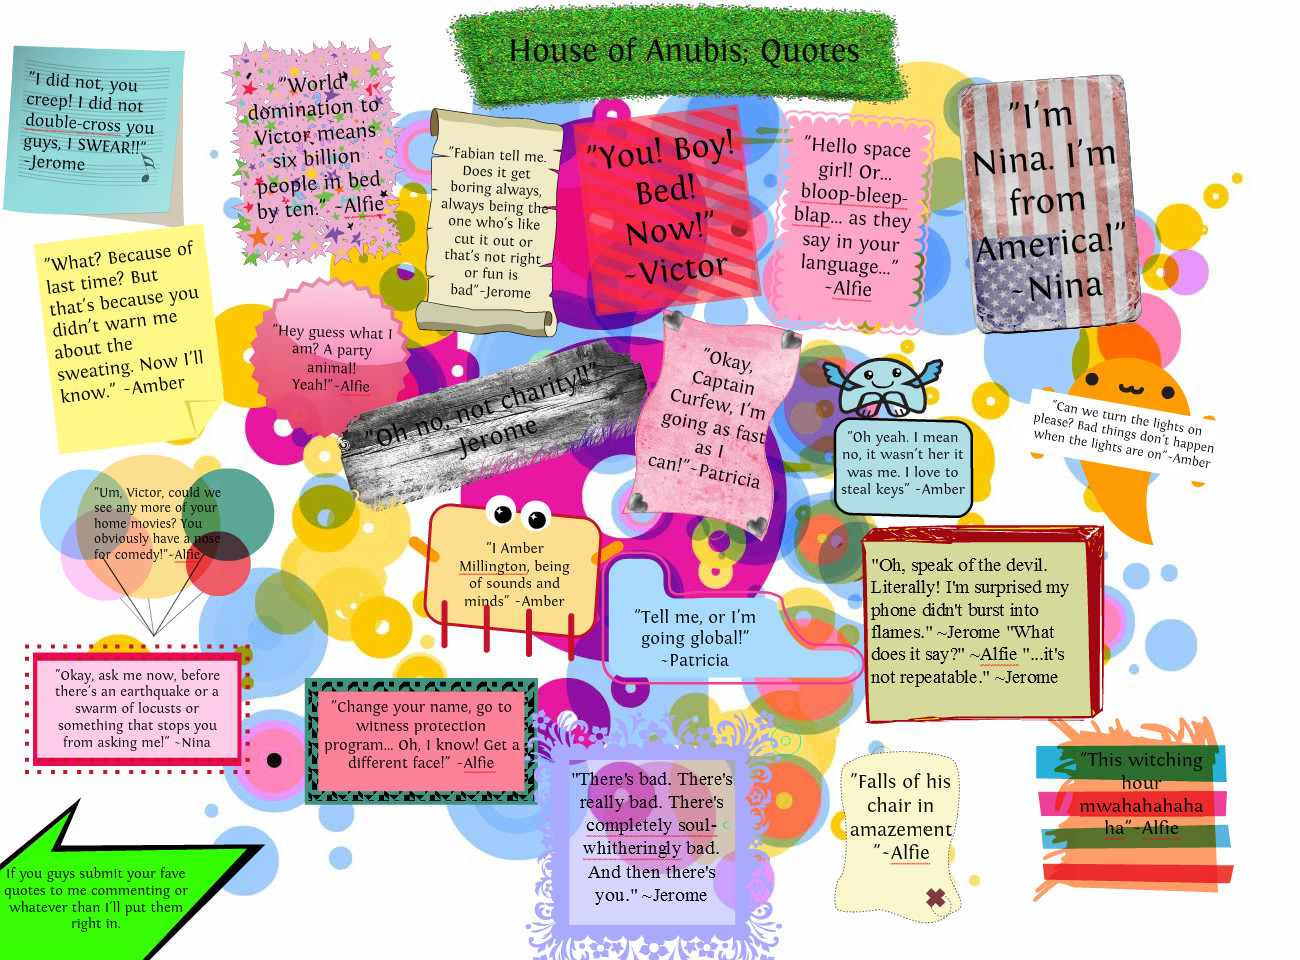 House of Anubis; Quotes
"I did not, you
creep! I did not
double-cross you
guys, I SWEAR!!"
~Jerome
"World
domination to
Victor means
six billion
people in bed
by ten." ~Alfie
"Fabian tell me.
Does it get
boring always,
always being the
one who's like
cut it out or
that's not right
or fun is
bad"-Jerome
"You! Boy!
Bed!
Now!"
~Victor
"Hello space
girl! Or...
bloop-bleep-
blap... as they
say in your
language..."
~Alfie
"I'm
Nina. I'm
from
America!"
~Nina
"What? Because of
last time? But
that's because you
didn't warn me
about the
sweating. Now I'll
know." ~Amber
"Hey guess what I
am? A party
animal!
Yeah!"~Alfie
"Oh no, not charity!!"
Jerome
"Okay,
Captain
Curfew, I'm
going as fast
as I
can!"~Patricia
"Oh yeah. I mean
no, it wasn't her it
was me. I love to
steal keys" -Amber
"Can we turn the lights on
please? Bad things don't happen
when the lights are on"-Amber
"Um, Victor, could we
see any more of your
home movies? You
obviously have a nose
for comedy!"-Alfie
"I Amber
Millington, being
of sounds and
minds" -Amber
"Tell me, or I'm
going global!"
~Patricia
"Oh, speak of the devil.
Literally! I'm surprised my
phone didn't burst into
flames." ~Jerome "What
does it say?" ~Alfie "...it's
not repeatable." ~Jerome
"Okay, ask me now, before
there's an earthquake or a
swarm of locusts or
something that stops you
from asking me!" ~Nina
"Change your name, go to
witness protection
program... Oh, I know! Get a
different face!" -Alfie
"There's bad. There's
really bad. There's
completely soul-
whitheringly bad.
And then there's
you." ~Jerome
"Falls of his
chair in
amazement
"~Alfie
"This witching
hour
mwahahahaha
ha"-Alfie
If you guys submit your fave
quotes to me commenting or
whatever than I'll put them
right in.